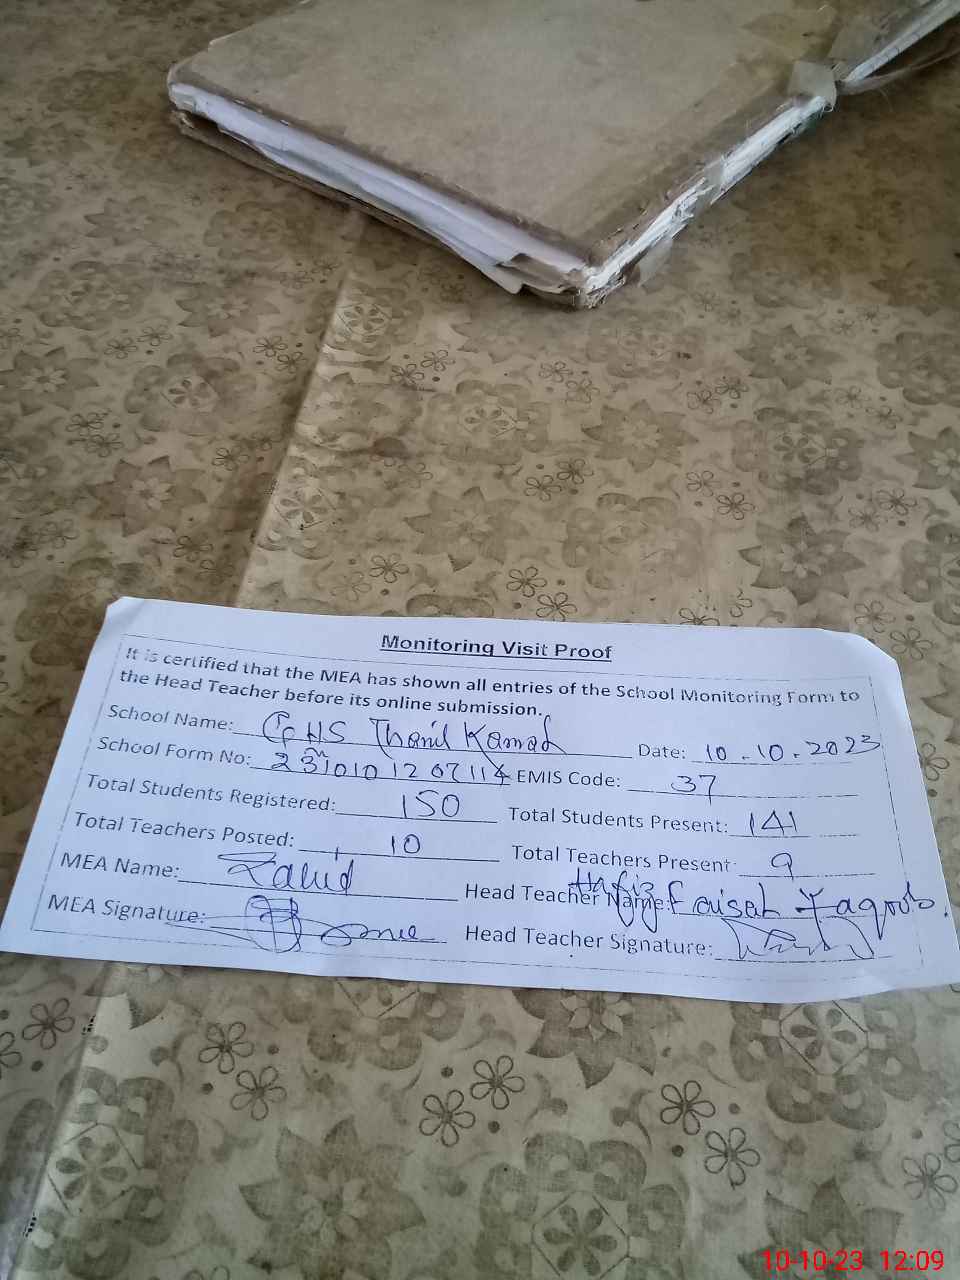 Monitoring Visit Proof
It is certified that the MEA has shown all entries of the School Monitoring Form to
the Head Teacher before its online submission.
School Name: GHS Date: 10.10.2023
School Form No: EMIS Code: 37
Total Students Registered: 150 Total Students Present: 141
Total Teachers Posted: 10 Total Teachers Present: 9
MEA Name: Zahid Head Teacher Name: Hafiz Faisal Yaqoob.
MEA Signature: Head Teacher Signature:
10-10-23 12:09